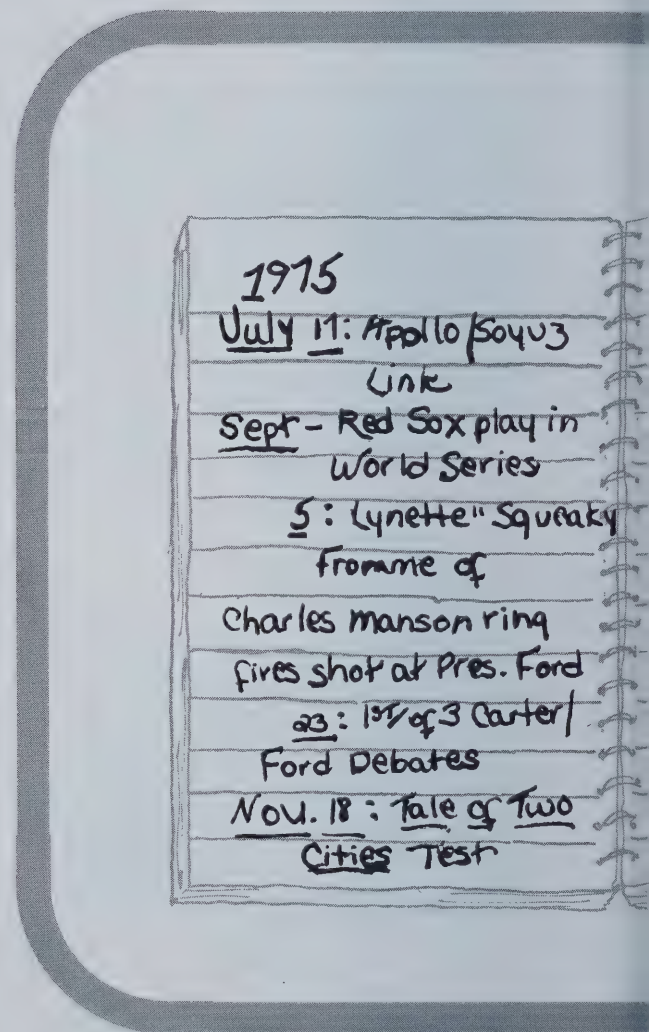 1975
July 17: Apollo/Soyuz
Link
Sept - Red Sox play in
World Series
5: Lynette" Squeaky
Fromme of
Charles manson ring
fires shot at Pres. Ford
23: 1st/of 3 Carter/
Ford Debates
Nov. 18: Tale of Two
Cities Test